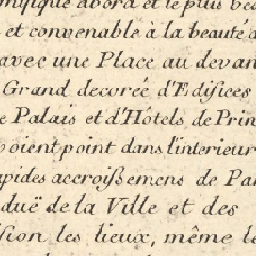 abord et le plus
et convenable à la beauté
avec une Place au devan
Grand decoreé d'Edifices
Palais et d'Hôtels de Prin
oient point dans l'interieur
pides accroißemens de Pa
duë de la Ville et des
sion les lieux, même le